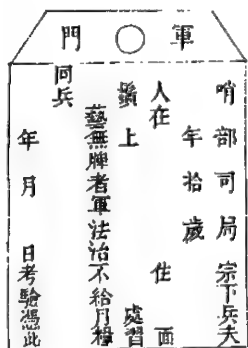 軍門
哨部司局宗下兵夫
年拾歲
人在住面
鬚上處習
藝無牌者軍法治不給月糧
兵
年月日考驗憑此